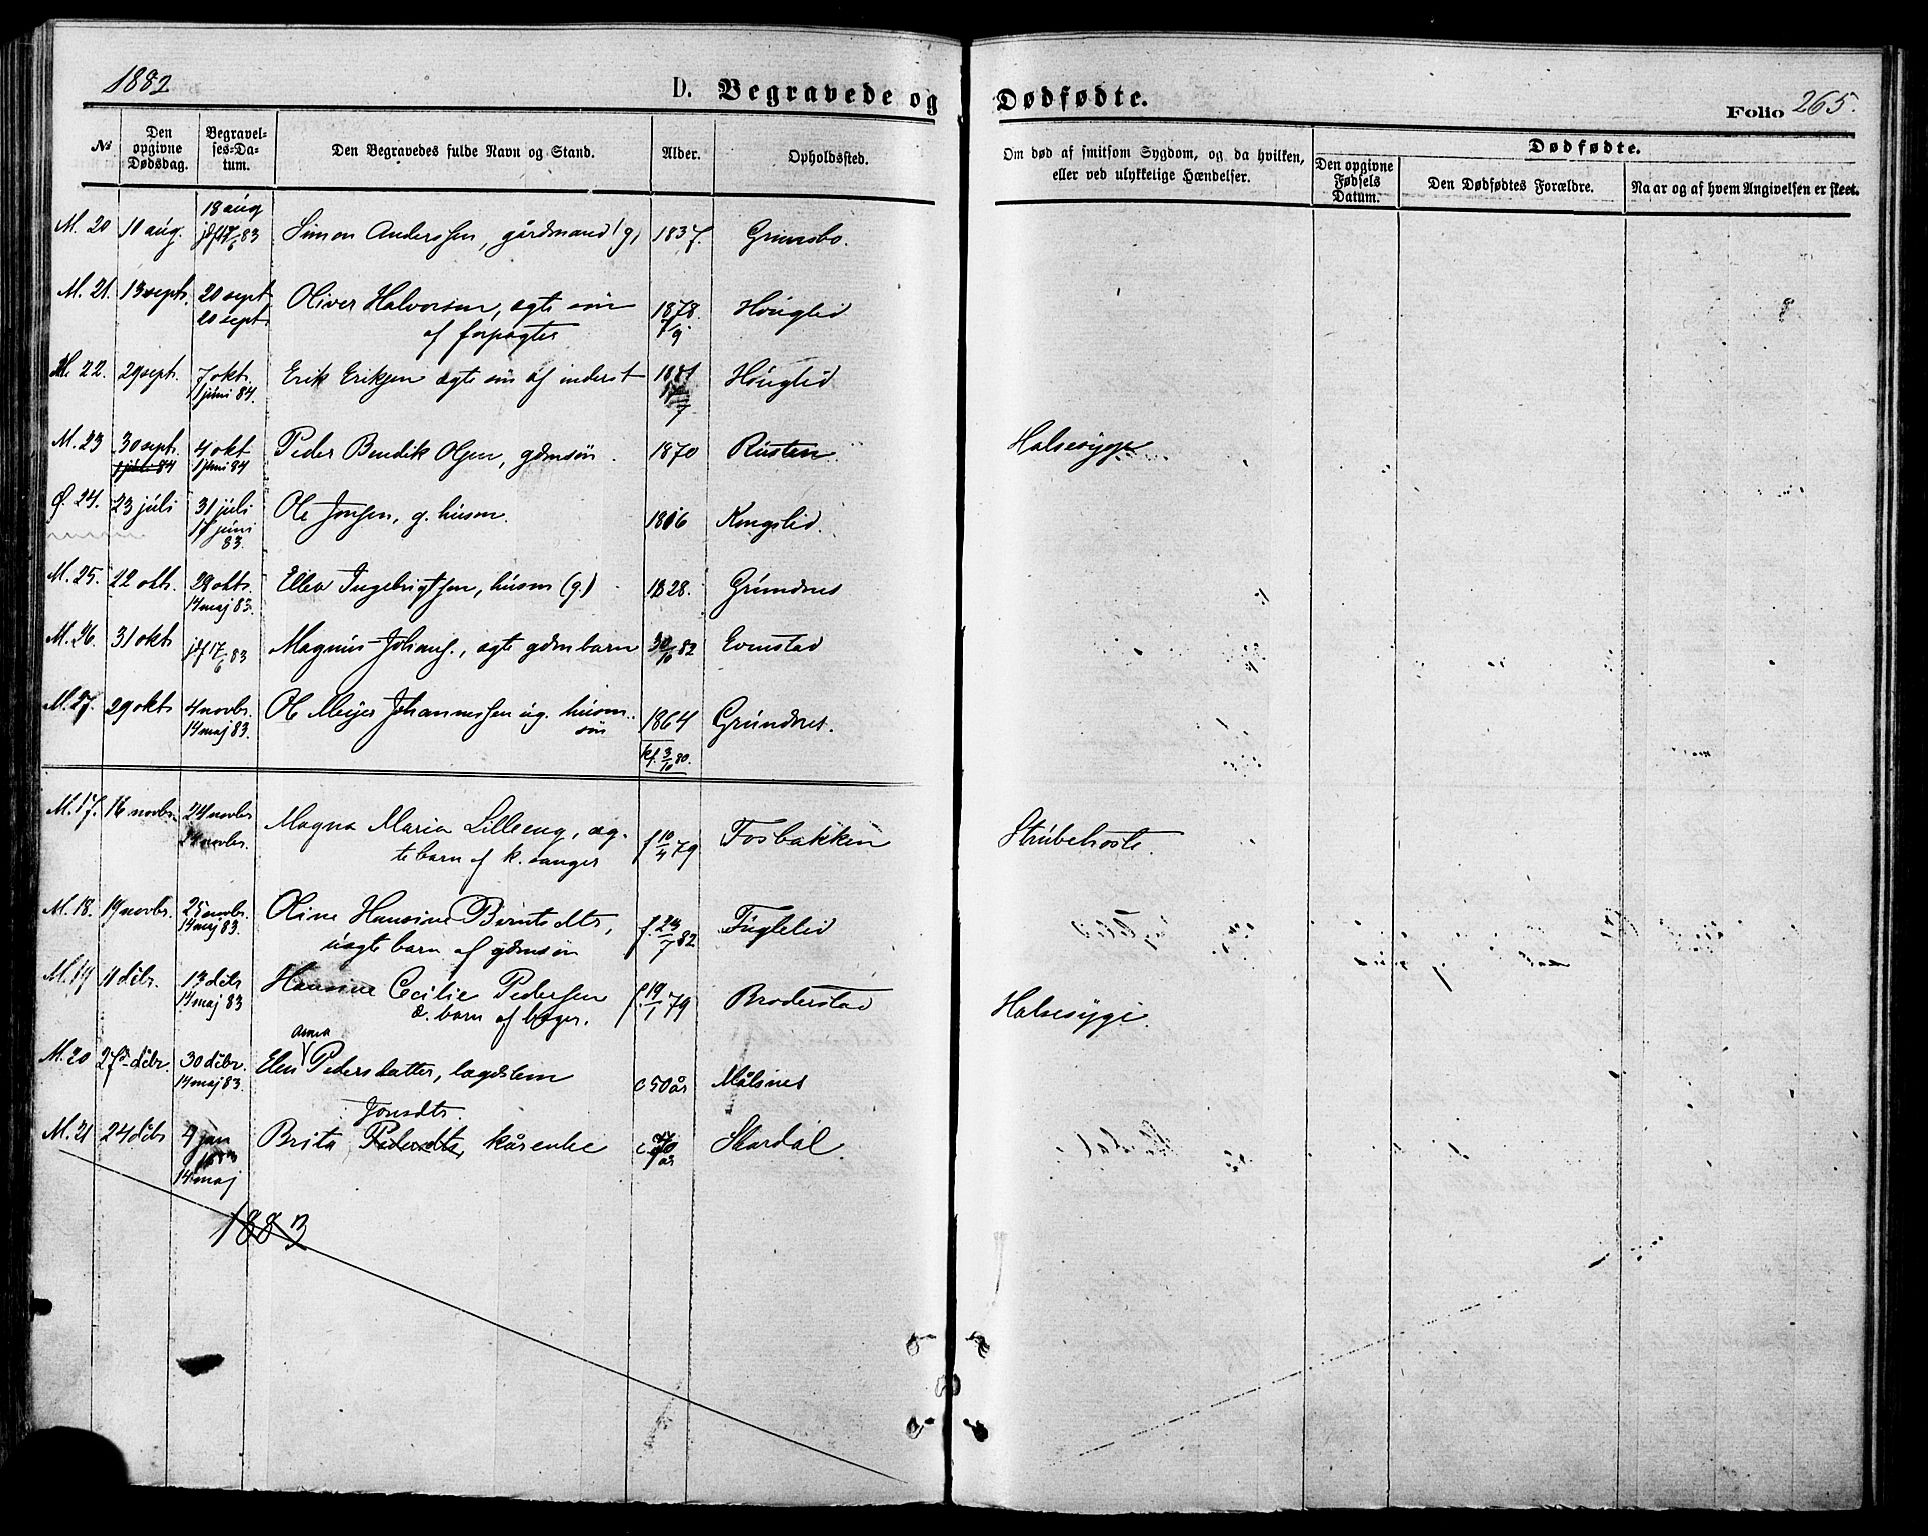 1882
D. Begravede og Dødfødte.
Folio 265.
No
Den opgivne Dødsdag.
Begravelses-Datum.
Den Begravedes fulde Navn og Stand.
Alder.
Opholdssted.
Om død af smitsom Sygdom, og da hvilken, eller ved ulykkelige Hændelser.
Dødfødte.
Den opgivne Fødsels Datum.
Den Dødfødtes Forældre.
Naar og af hvem Angivelsen er skeet.
M. 20 10 aug. 18 aug Simon Anderssen, gårdmand (g) 1837. Grimsbo.
jdf 17/6 83
M. 21. 13 sept. 20 sept Oliver Halvorsen, ægte søn 1878. Høuglid
20 sept af forpagter 7/9
M. 22. 29 sept. 7 okt. Erik Eriksen ægte søn af inderst 1881 Høuglid
1 juni 84.
M. 23 30 sept. 4 okt Peder Bendik Olsen, gdmsøn. 1870 Rusten Halsesyge
1 juni 84 1 juni 84
Ø. 24. 23 juli 31 juli Ole Jonsen, g. husm. 1806 Kongslid.
17 juni 83.
M. 25. 22 okt. 29 okt. Ellev Ingebrigtsen, husm (g) 1828. Grundnes
14 maj 83.
M. 26. 31 okt jdf 17/6 83 Magnus Johans., ægte gdmbarn 30/10 82 Evenstad
M. 27. 29 okt 4 novbr. Ole Meyer Johannessen ug. husm. 1864 Grundnes.
14 maj 83. søn
kf. 3/10 80.
M. 17. 16 novbr. 24 novbr Magna Maria Lilleeng, æg- f 10/4 79 Fosbakken Strubehoste.
24 novbr. te barn af k. sanger
M. 18. 19 novbr. 25 novbr. Oline Hansine Berntsdtr, f. 23/7 82 Fuglelid
14 maj 83. uægte barn af gdmsøn
M. 19 11 debr. 13 debr Hansine Cecilie Pedersen f. 19/1 79 Broderstad Halsesyge.
14 maj 83 æ. barn af bøger.
Anna
M. 20 27de debr. 30 debr. Elen Pedersdatter, lægdslem c 50 år Målsnes
14 maj 83.
Jonsdtr.
M. 21 24 debr 4 jan Brita Pedersdtr, kårenke c. 70 år Stordal.
14 maj
1883